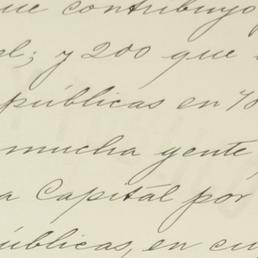 que contribuyo
al; y 200 que
públicas en 40
mucha gente,
a Capital por
públicas, en cu